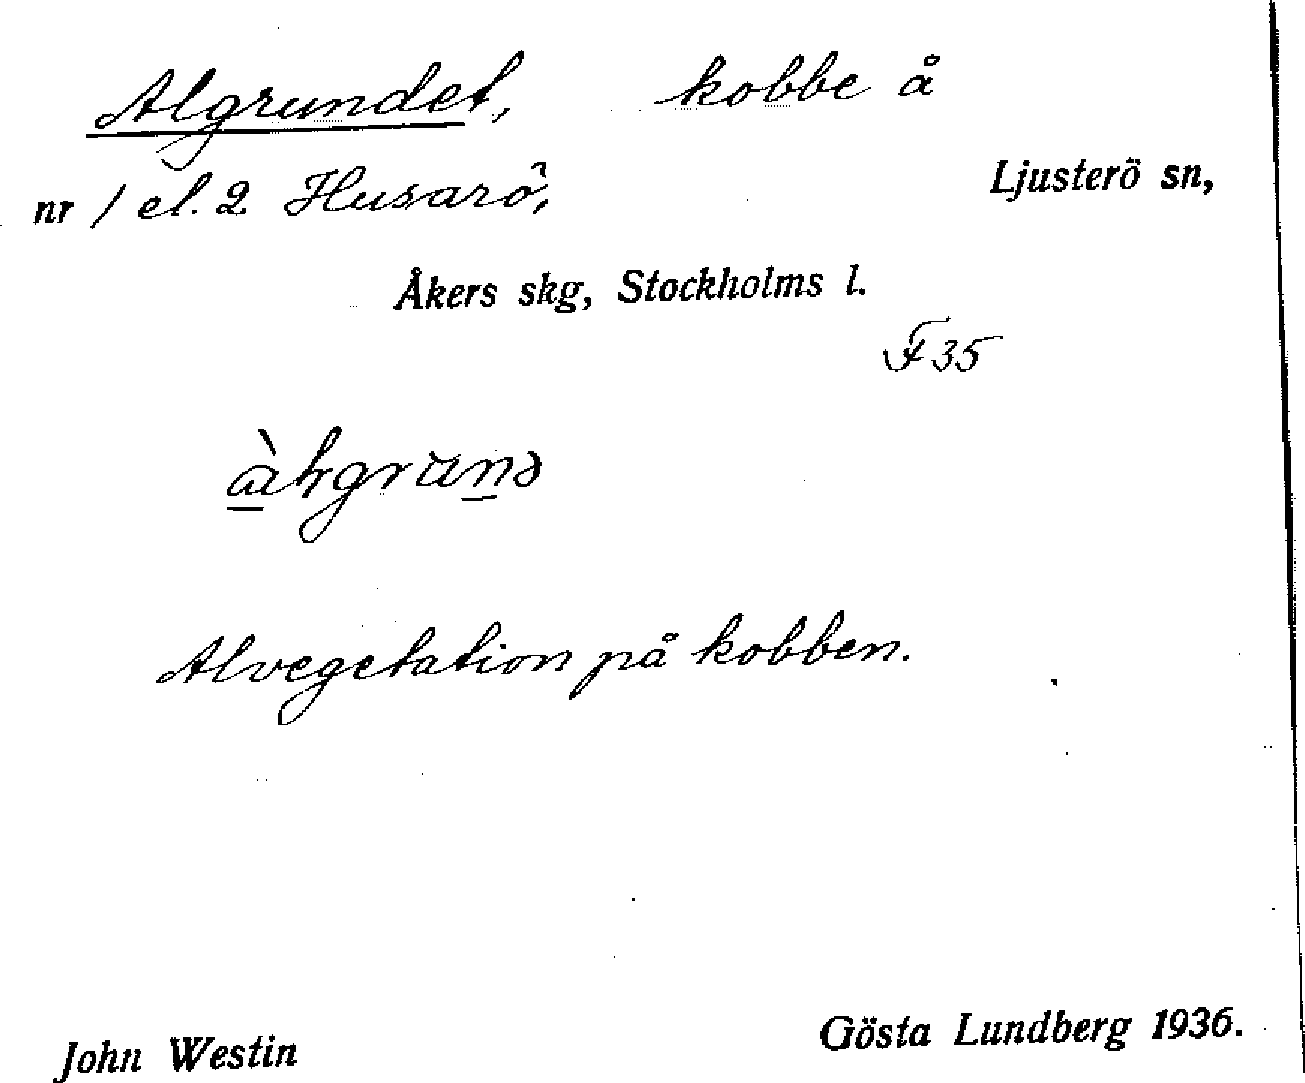 Algrundet, kobbe å
nr 1 el. 2 Husarö, Ljusterö sn,
Åkers skg, Stockholms l.
F 35
Alvegetation på kobben.
John Westin Gösta Lundberg 1936.